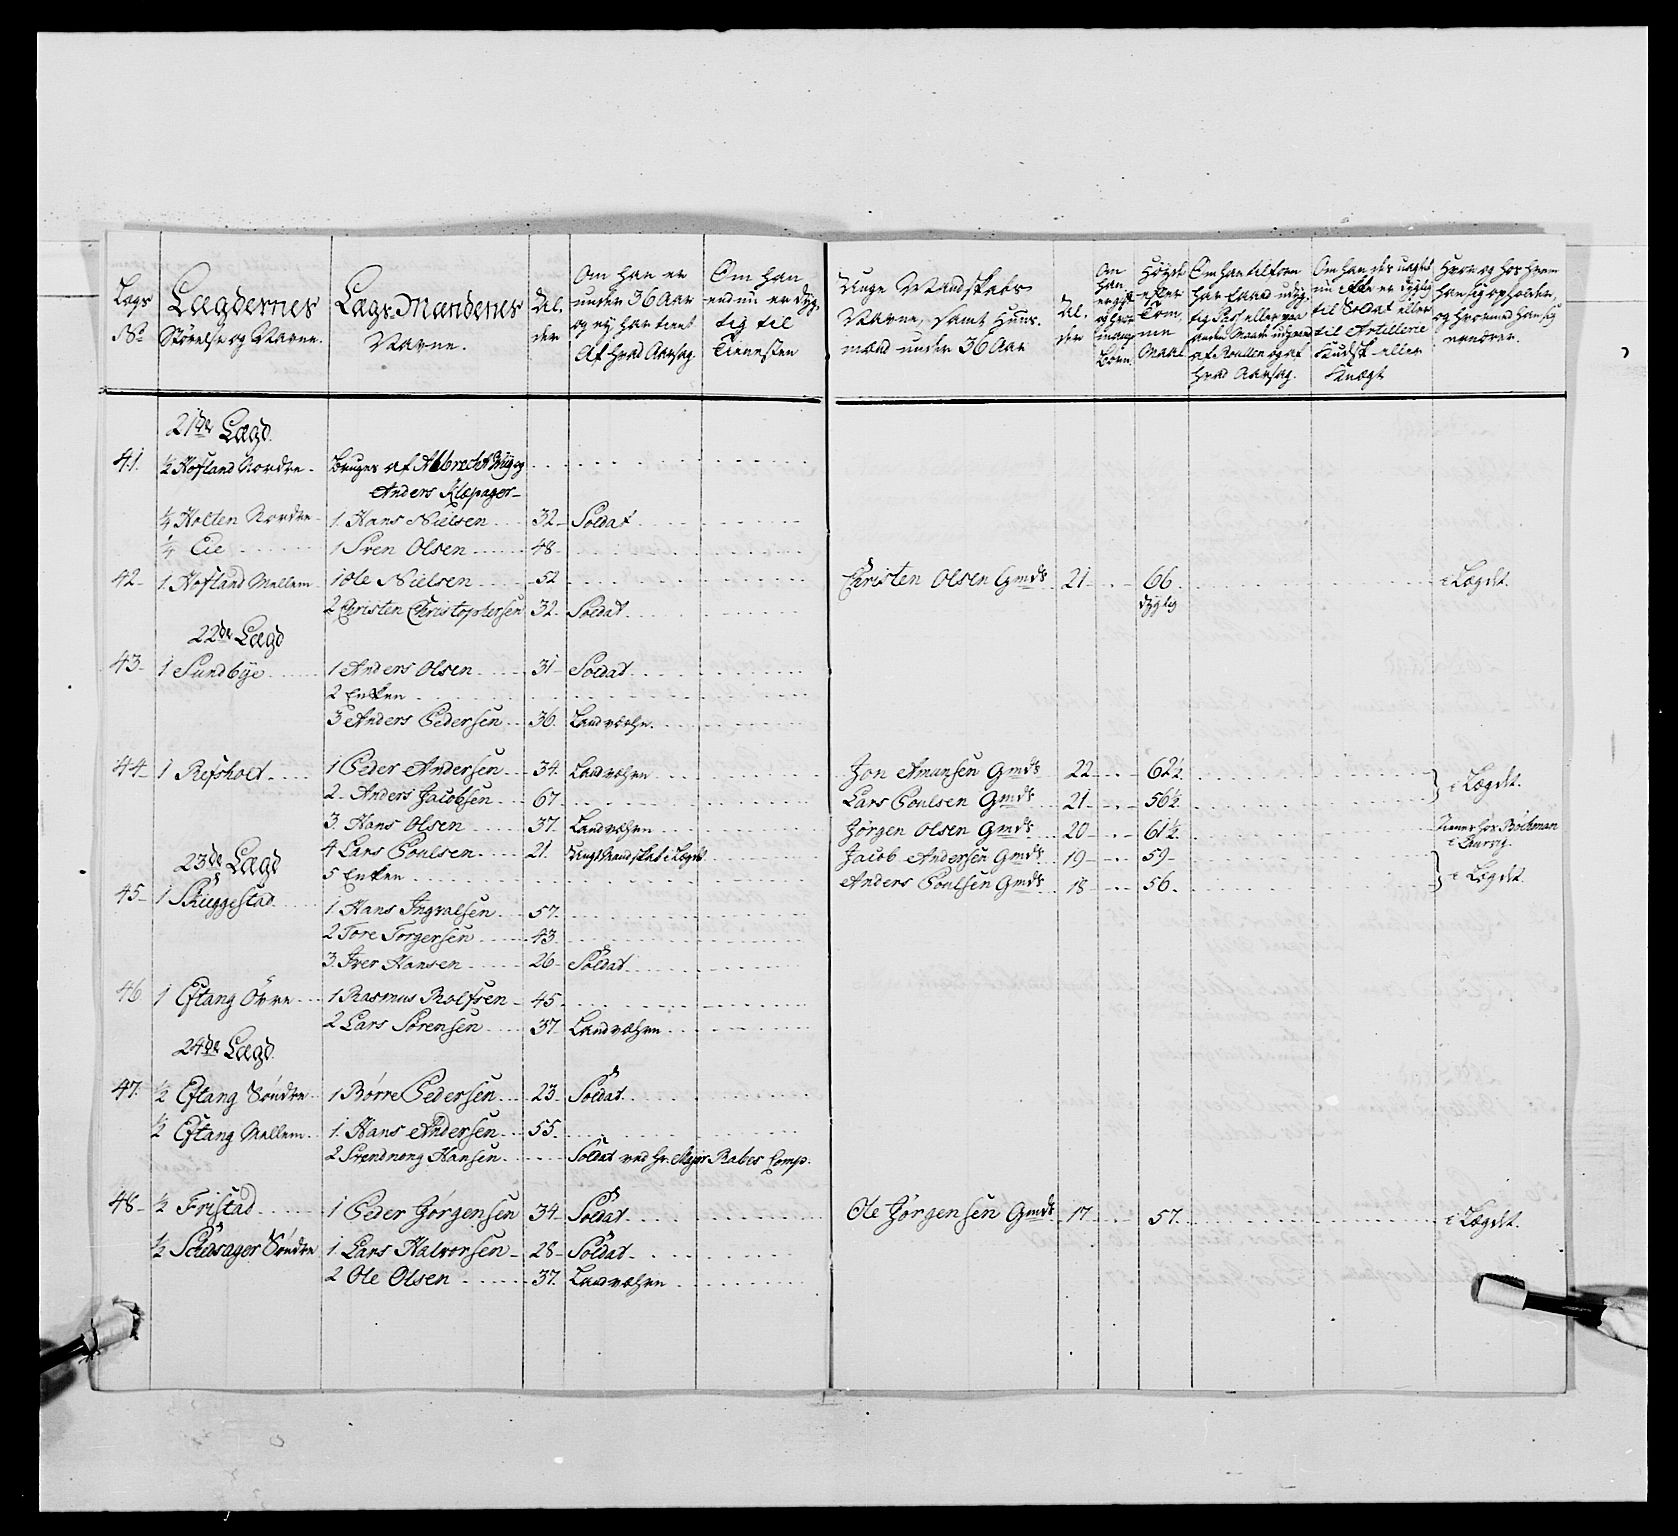 Lægs
No
Lægdernes
Størelse og Navne.
Lægs-Mændenes
Navne.
Al.
der
Om han er
under 36 Aar
og ey har tient
Af hvad Aarsag.
Om han
endnu er dyg-
tig til
Tienesten
Unge Mandskabs
Navne, samt Huus-
mænd under 36 Aar
Al.
der
Om
han
er gift
og hvor
mange
Børn.
Høyde
efter
Tom-
me
Maal
Om han tilforn
har faaed udyg-
tig Pass eller paa
anden Maade udgaaed
af Roullen og af
hvad Aarsag.
Om han der uagtet
nu er dygtig
til Soldat eller
til Artillerie
Kudsk eller
Knægt
Hvor og hos hvem
han sig opholder,
og hvormed han sig
ernærer.
21de Lægd
41. ½ Hofland Nordre. bruges af Albrecht og
Anders Klepager
¼ Holten Nordre 1. Hans Nielsen 32 Soldat
¼ Eie 1 Sven Olsen 48
42 1 Hofland Mellem 1 Ole Nielsen 52 Christen Olsen Gmds 21 66. i Lægdet.
dygtig
2 Christen Christophersen 32. Soldat
22de Lægd
43 1 Sundbye 1 Anders Olsen 31 Soldat
2 Enken
3 Anders Pedersen 36. Landværn.
44 1 Refsholt 1 Peder Andersen 34. Landværn Jon Amunsen Gmds 22 62½ i Lægdet.
2. Anders Jacobsen 67 Lars Poulsen Gmds 21 56½
3. Hans Olsen 37. Landværn Jørgen Olsen Gmds 20 61½ tiener hos Bockman
i Laurvig.
23de Lægd 4 Lars Poulsen 21. Ungt Mandskab i Lægdet Jacob Andersen Gmds 19 59 i Lægdet.
5 Enken Anders Poulsen Gmds 18 56.
45 1 Skiggestad 1 Hans Ingvalsen 57.
2 Tore Torgersen 43
3. Iver Hansen 26 Soldat
46 1 Eftang Övre 1 Rasmus Rolfsen 45
2 Lars Sörensen 37 Landværn
24de Lægd
47. ½ Eftang Söndre 1 Börre Pedersen 23. Soldat
½ Eftang Mellem 1. Hans Andersen 55.
2 Svendnong Hansen Soldat ved Hr. Major Rabes Comp.
48 ½ Fristad 1 Peder Jörgensen 34 Soldat Ole Jörgensen Gmds 17 57. i Lægdet.
½ Söndre 1 Lars Halvorsen 28 Soldat
2 Ole Olsen 37. Landværn